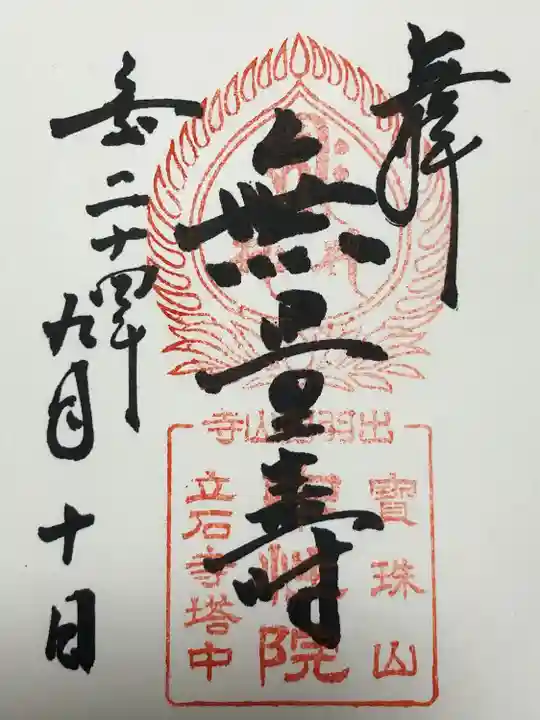 奉拝
無量寿
平成二十四年
九月十日
出羽山寺
寶珠山
院
立石寺塔中